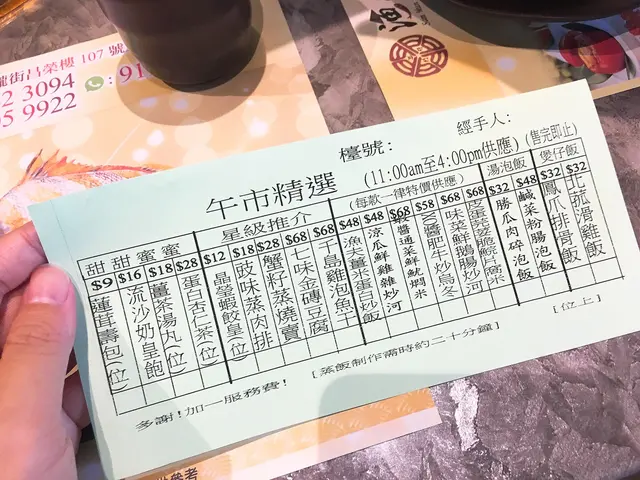 街昌榮樓 107 號
2 3094
91
5 9922
漁
檯號:
經手人:
午市精選
(11:00am至4:00pm供應)
(售完即止)
甜甜蜜蜜
星級推介
(每款一律特價供應)
湯泡飯
煲仔飯
$9 蓮茸壽包(位)
$16 流沙奶皇飽
$18 薑茶湯丸(位)
$28 蛋白杏仁茶(位)
$12 晶瑩蝦餃皇(位)
$18 豉味蒸肉排
$28 蟹籽蒸燒賣
$68 七味金磚豆腐
$68 千島雞泡魚干
$48 薑米蛋白炒飯
$48 涼瓜鮮雞雜炒河
$68 醬通菜鮮魷燜米
$58 XO醬肥牛炒烏冬
$68 味菜鮮鵝腸炒河
$68 皮蛋脆鯇窩米
$32 勝瓜肉碎泡飯
$48 鹹菜粉腸泡飯
$32 鳳爪排骨飯
$32 北菰滑雞飯
多謝!加一服務費!
[蒸飯制作需時約二十分鐘]
[位上]
參考